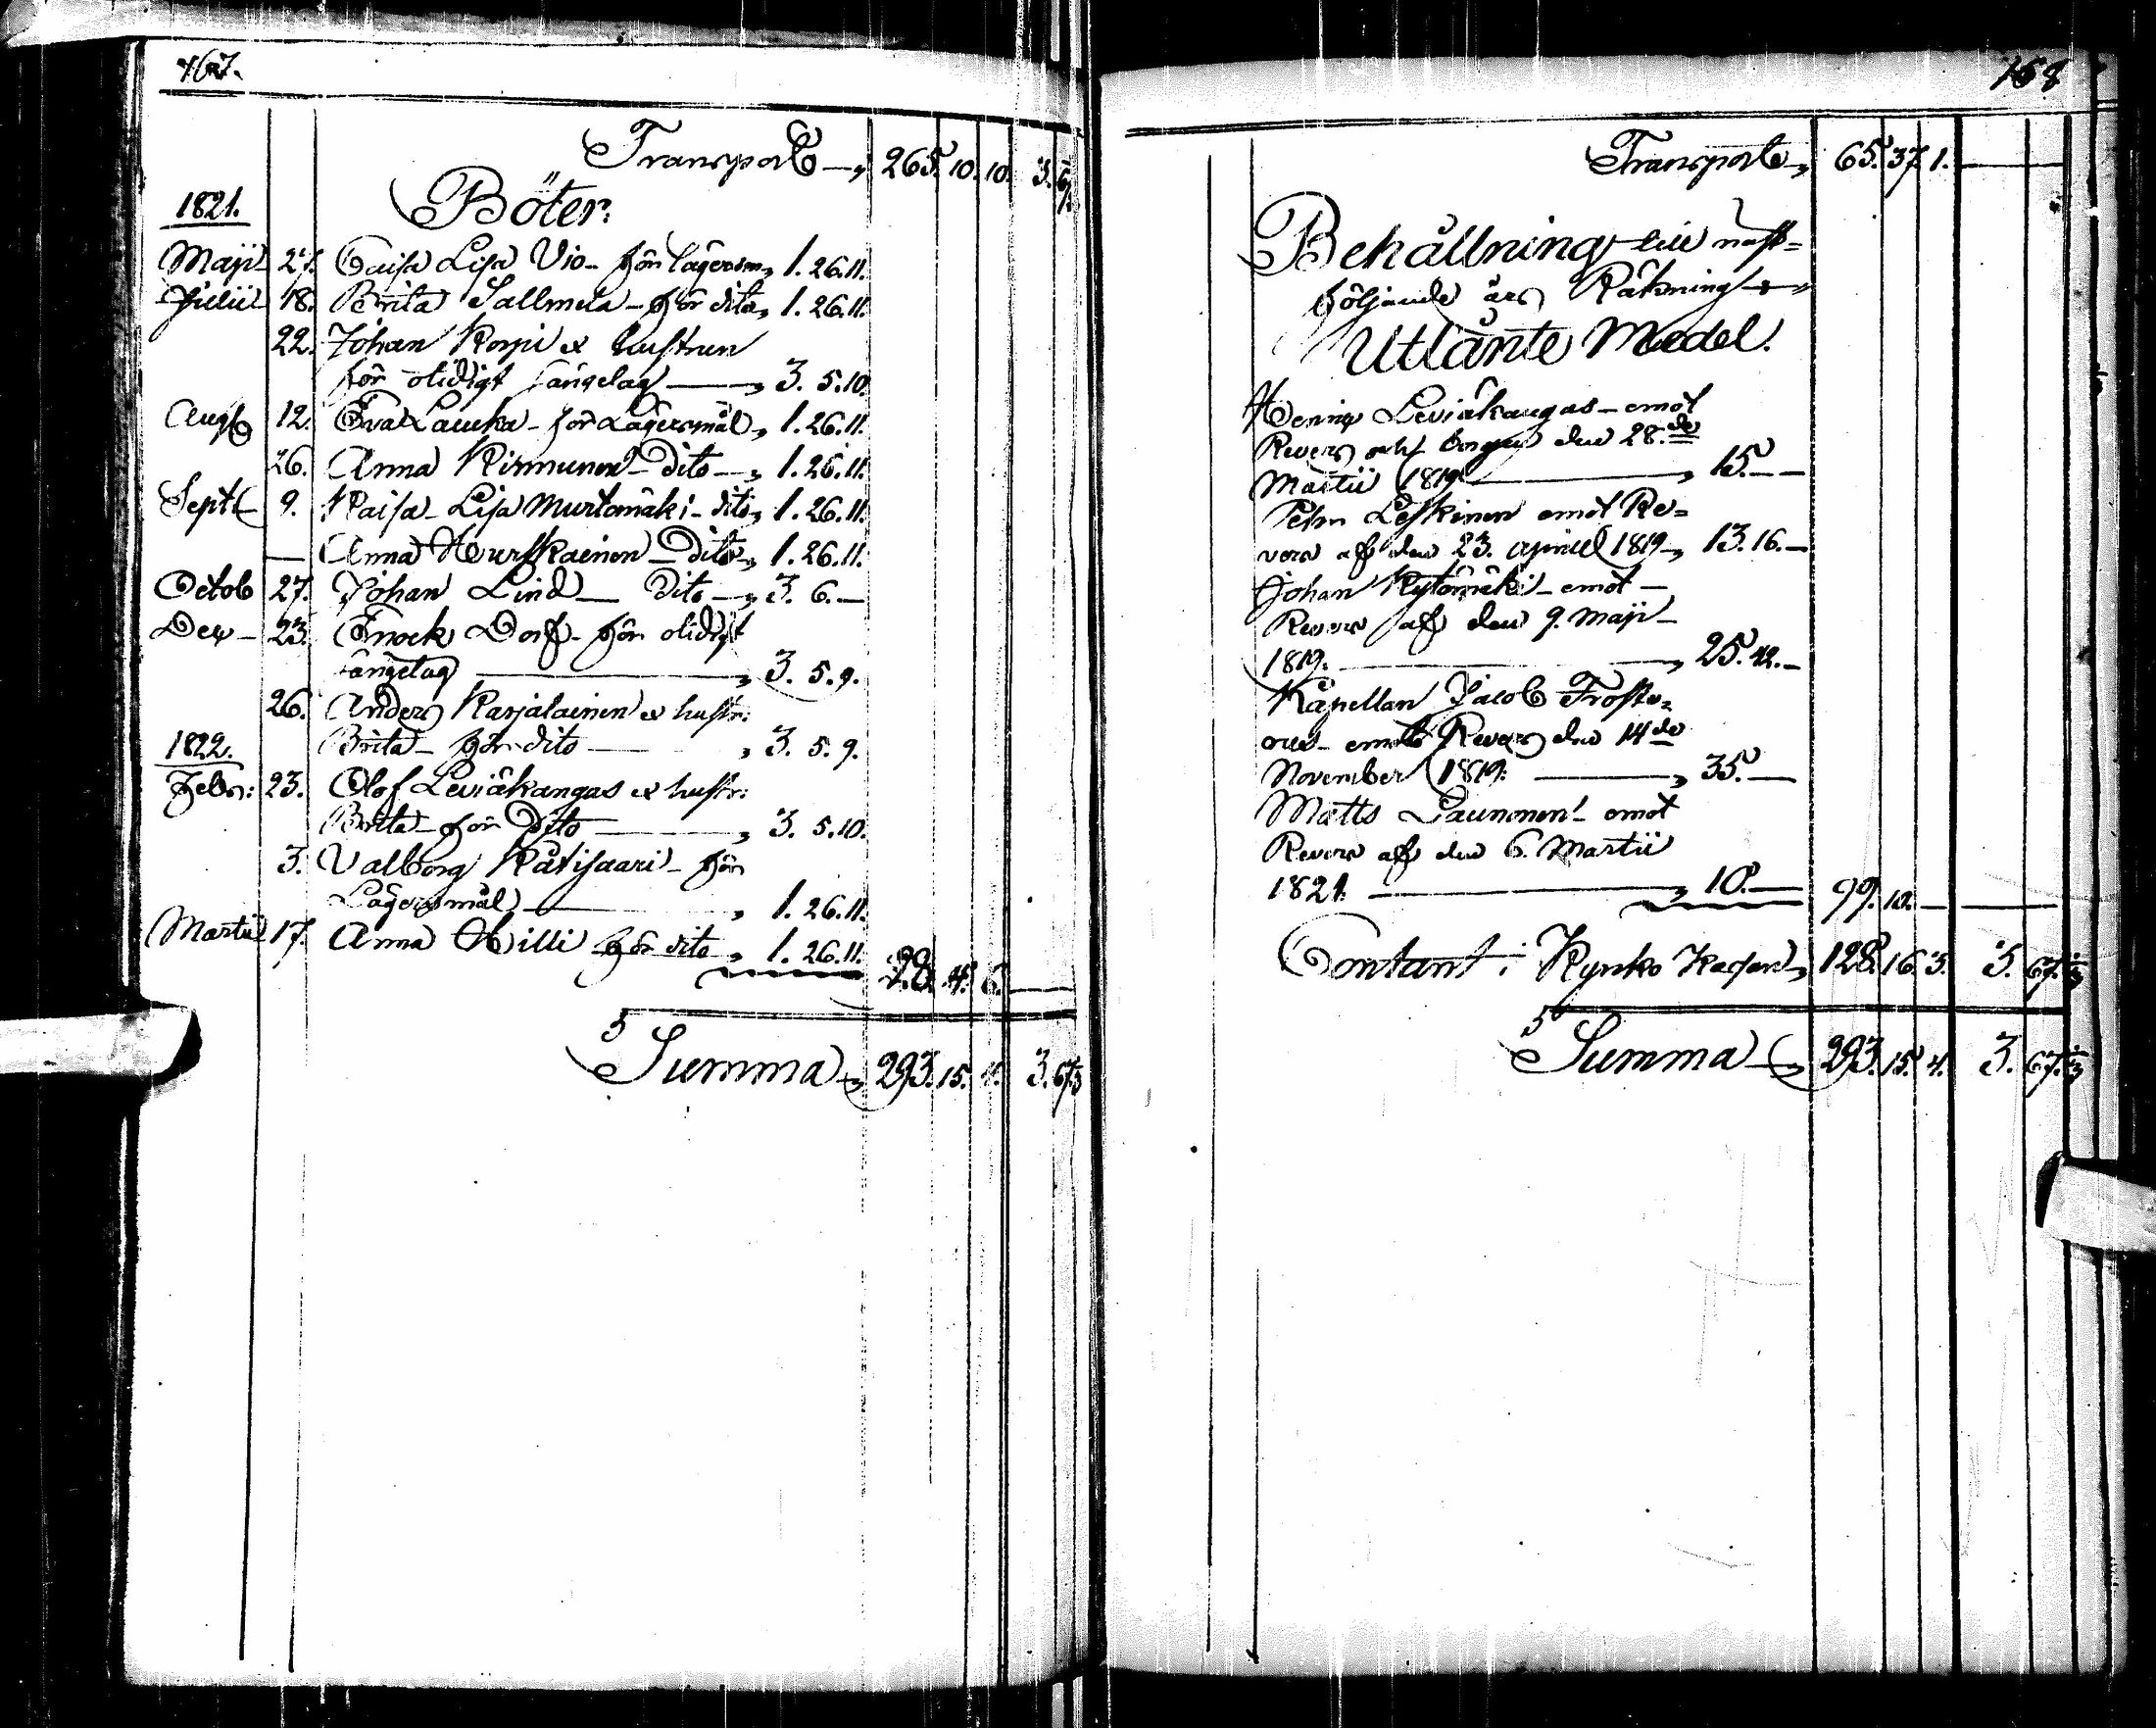 167.
Transport — 265. 10. 10. 3. 67
Böter:
1821.
Maji 27. Caisa Lisa Vio – för lägersm, 1. 26. 11.
Julii 18. Brita Sallmela – för dito, 1. 26. 11.
22. Johan Korpi & hustrun
för otidigt sängelag — 3. 5. 10.
Aug 12. Eva Laucka – för Lägersmål, 1. 26. 11.
26. Anna Kinnunen – dito — 1. 26. 11.
Sept 9. Kaisa Lisa Murtomäki – dito, 1. 26. 11.
— Anna Hurskainen – dito, 1. 26. 11.
Octob 27. Johan Lind — dito — 3. 6. —
Dex – 23. Enock Dorf – för otidigt
sängelag — 3. 5. 9.
26. Anders Karjalainen & hustr:
Brita – för dito — 3. 5. 9.
1822.
Febr: 23. Olof Leviäkangas & hustr:
Brita – för dito — 3. 5. 10.
3. Valborg Kätisaari – för
Lägersmål — 1. 26. 11.
Martii 17. Anna Hilli för dito, 1. 26. 11.
28. 4. 6. —
Summa — 293. 15. 4. 3. 67
168
Transport, 65. 37. 1. —
Behållning till näst=
följande års Räkning
Utlånte Medel.
Henric Leviäkangas – emot
Revers och borgen den 28.de
Martii 1819 — 15. — —
Petter Leskinen emot Re=
vers af den 23. April 1819 — 13. 16. —
Johan Kytömäki – emot –
Revers af den 9. Maji –
1819. — 25. 42. —
Kapellan Jacob Froste=
rus – emot Revers den 14de
November 1819: — 35. —
Matts Launonen – emot
Revers af den 6. Martii
1821. — 10. — 99. 10. — —
Contant i Kyrko Kassan, 128. 16. 3. 3. 67.
Summa — 293. 15. 4. 3. 67.